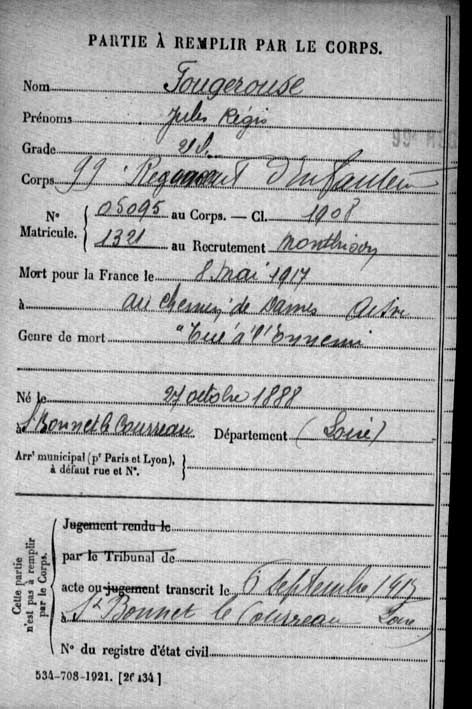 PARTIE À REMPLIR PAR LE CORPS.
Nom Fougerouse
Prénoms Jules Régis
Grade 2e S.
99e
Corps 99e Régiment d'Infanterie
N° Matricule. 05095 au Corps. — Cl. 1908
1321 au Recrutement Montbrison
Mort pour la France le 8 mai 1917
à au chemin de Dames Aisne
Genre de mort "Tué à l'Ennemi
Né le 27 octobre 1888
à St Bonnet le Courreau Département (Loire)
Arrt municipal (pr Paris et Lyon),
à défaut rue et N°.
Cette partie n'est pas à remplir par le Corps.
Jugement rendu le
par le Tribunal de
acte ou jugement transcrit le 6 septembre 1917
à St Bonnet le Courreau Loire
N° du registre d'état civil
534-708-1921. [26434]